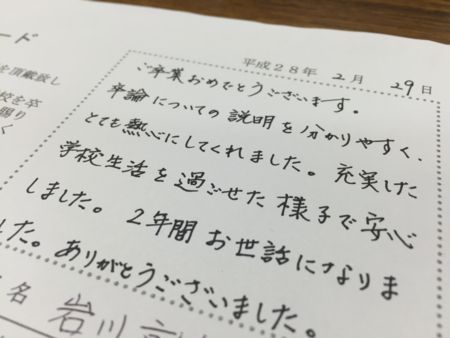 ード
平成28年 2月 29日
を頂戴致し
ご卒業おめでとうございます。
校を卒
卒論についての説明を分かりやすく、
賜り
とても熱心にしてくれました。充実した
く
学校生活を過ごせた様子で安心
しました。2年間お世話になりま
した。ありがとうございました。
名 岩川